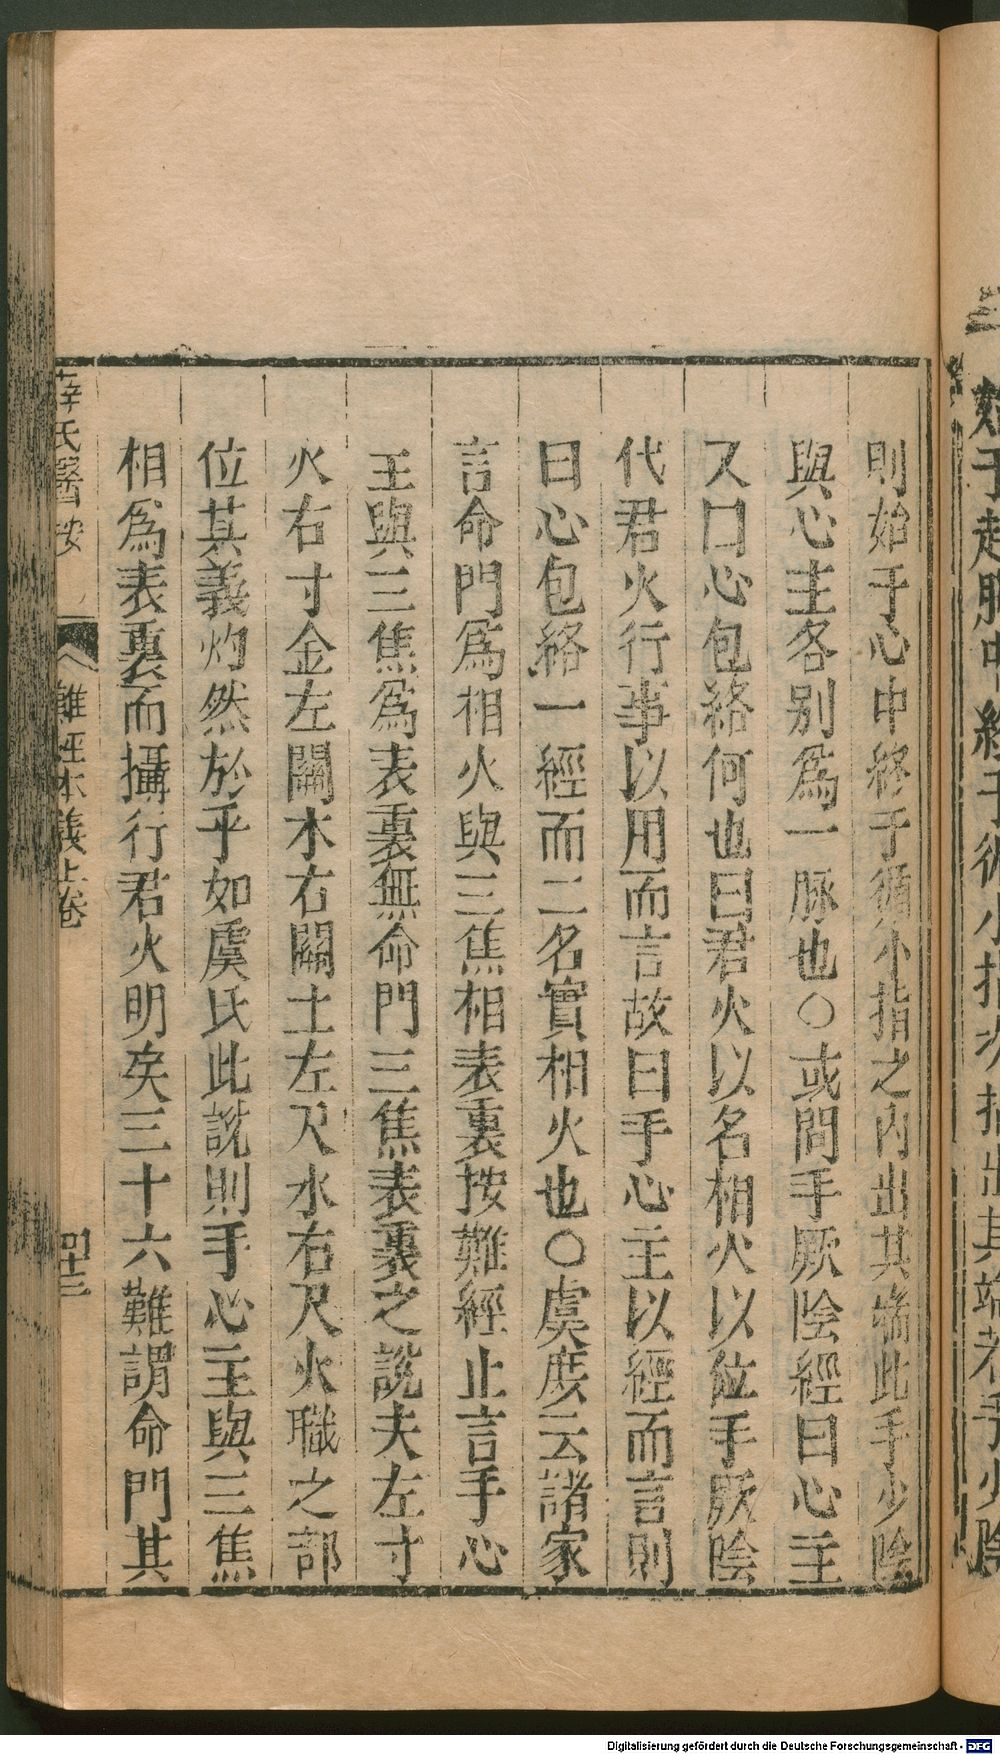 則始于心中終于循小指之內出其端此手少陰
與心主各别爲一脉也○或問手厥陰經曰心主
又曰心包絡何也曰君火以名相火以位手厥陰
代君火行事以用而言故曰手心主以經而言則
曰心包絡一經而二名實相火也○虞庶云諸家
言命門爲相火與三焦相表裏按難經止言手心
主與三焦爲表裏無命門三焦表裏之說夫左寸
火右寸金左關木右關土左尺水右尺火職之部
位其義灼然於乎如虞氏此說則手心主與三焦
相爲表裏而攝行君火明矣三十六難謂命門其
薛氏醫按 難經本義上卷 四十三
Digitalisierung gefördert durch die Deutsche Forschungsgemeinschaft - DFG